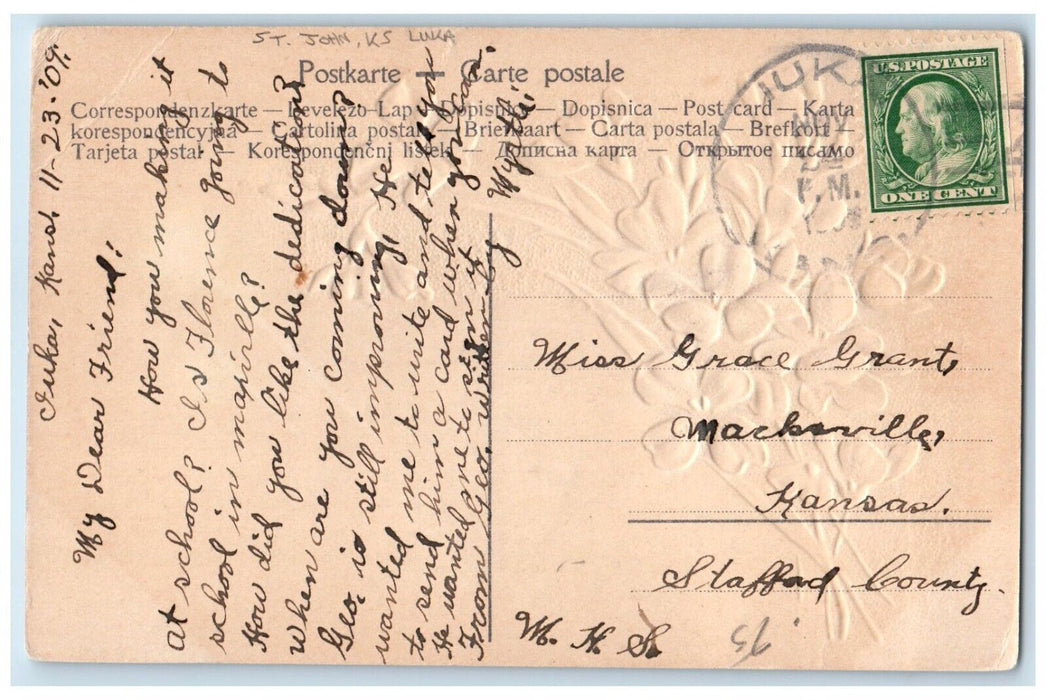 ST. JOHN, KS LUKA
Postkarte — Carte postale
Correspondenzkarte — Levelezo-Lap — Dopisnica — Dopisnica — Post card — Karta
korespondencyjna — Cartolina postale — Briefkaart — Carta postala — Brefkort —
Tarjeta postal — Korespondenčni listek — Дописна карта — Открытое письмо
IUKA
NOV
P.M.
U.S. POSTAGE
ONE CENT
Iuka, Kans. 11-23-'09.
My Dear Friend:
How you making it
at school? Is Florence going to
school in
How did you like the dedicaton?
when are you coming down?
Geo. is still improving, He
wanted me to write and tell you
to send him a card when you can.
He wanted me to sign it
From Geo. writen by Myrtle.
Miss Grace Grant,
Macksville,
Kansas.
Stafford County.
M. H. S.